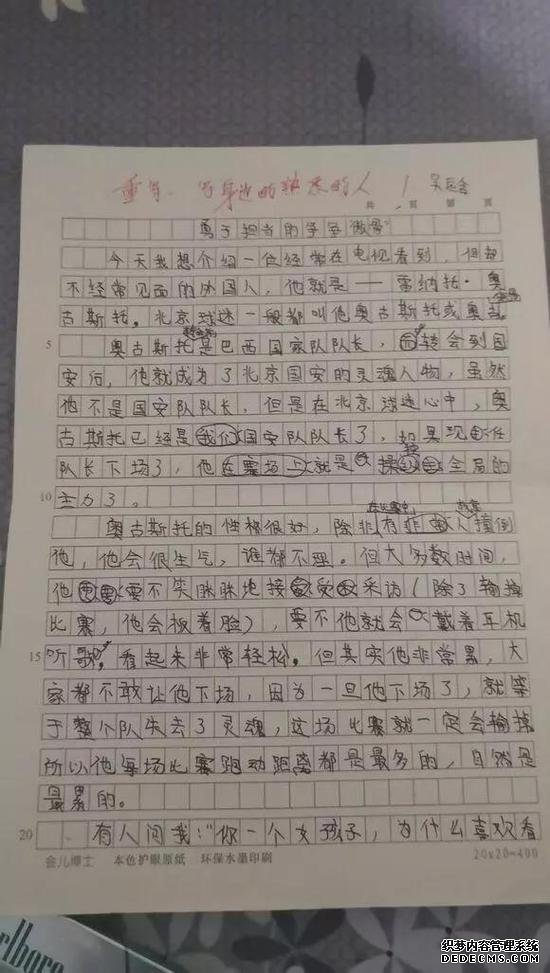 重写、写身边的熟悉的人
共 页 第 页
勇于担当的争争傲骨
今天我想介绍一位经常在电视看到,但却
不经常见面的外国人,他就是——雷纳托·奥
古斯托。北京球迷一般都叫他奥古斯托或奥
奥古斯托是巴西国家队队长,转会到国
安后,他就成为了北京国安的灵魂人物,虽然
他不是国安队队长,但是在北京球迷心中,奥
古斯托已经是我们国安队队长了,如果现任
队长下场了,他在赛场上就是操全局的
主力了。
奥古斯托的性格很好,除非有人撞倒
他,他会很生气,谁都不理。但大多数时间,
他要不笑眯眯地接受采访(除了输掉
比赛,他会板着脸),要不他就会戴着耳机
听歌,看起来非常轻松。但其实他非常累,大
家都不敢让他下场,因为一旦他下场了,就等
于整个队失去了灵魂,这场比赛就一定会输掉
所以他每场比赛跑动距离都是最多的,自然是
最累的。
有人问我:“你一个女孩子,为什么喜欢看
5
10
15
20
金儿博士 本色护眼原纸 环保水墨印刷 20×20=400
织梦内容管理系统
DEDECMS.COM